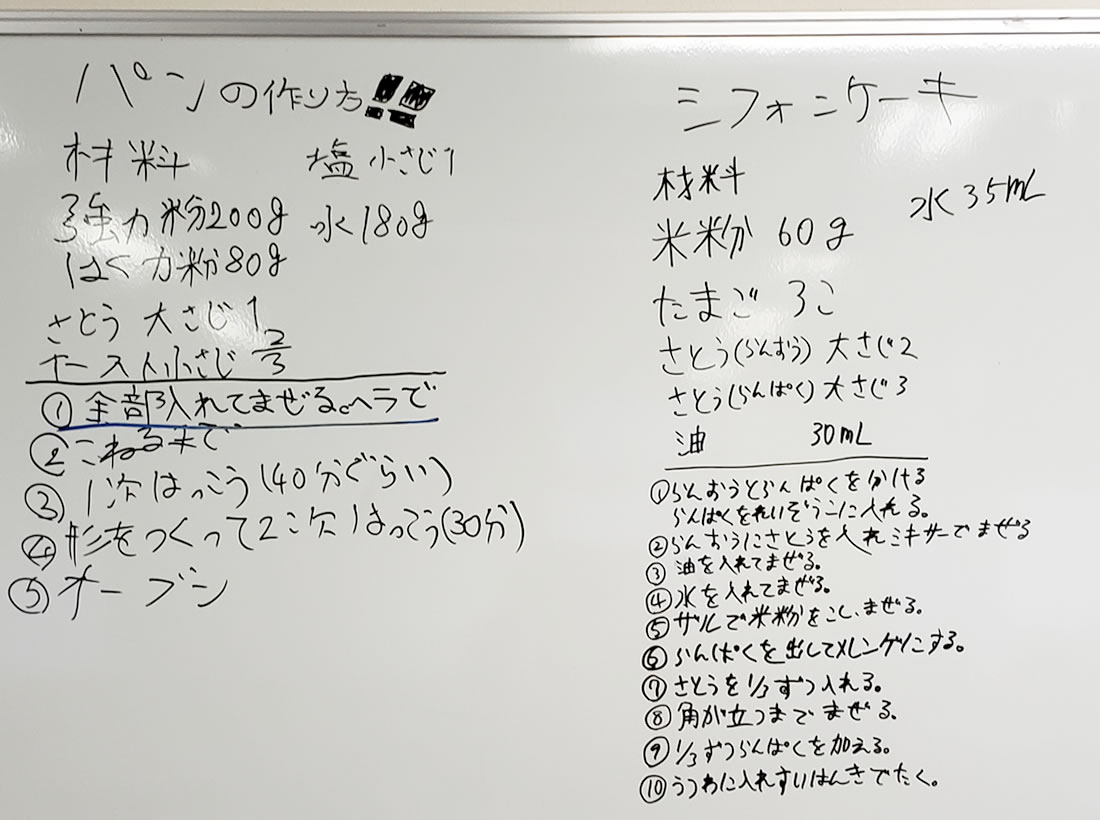 パンの作り方!!
材料 塩 小さじ1
強力粉200g 水180g
はく力粉80g
さとう 大さじ1
イースト小さじ 2/3
① 全部入れてまぜる。ヘラで
② こねるまで
③ 1次はっこう(40分ぐらい)
④ 形をつくって2こ次はっこう(30分)
⑤ オーブン
シフォンケーキ
材料
水35mL
米粉 60g
たまご 3こ
さとう(らんおう) 大さじ2
さとう(らんぱく) 大さじ3
油 30mL
① らんおうとらんぱくをわける
らんぱくをれいぞうこに入れる。
② らんおうにさとうを入れミキサーでまぜる
③ 油を入れてまぜる。
④ 水を入れてまぜる。
⑤ ザルで米粉をこし、まぜる。
⑥ らんぱくを出してメレンゲにする。
⑦ さとうを1/3ずつ入れる。
⑧ 角が立つまでまぜる。
⑨ 1/3ずつらんぱくを加える。
⑩ うつわに入れすいはんきでたく。